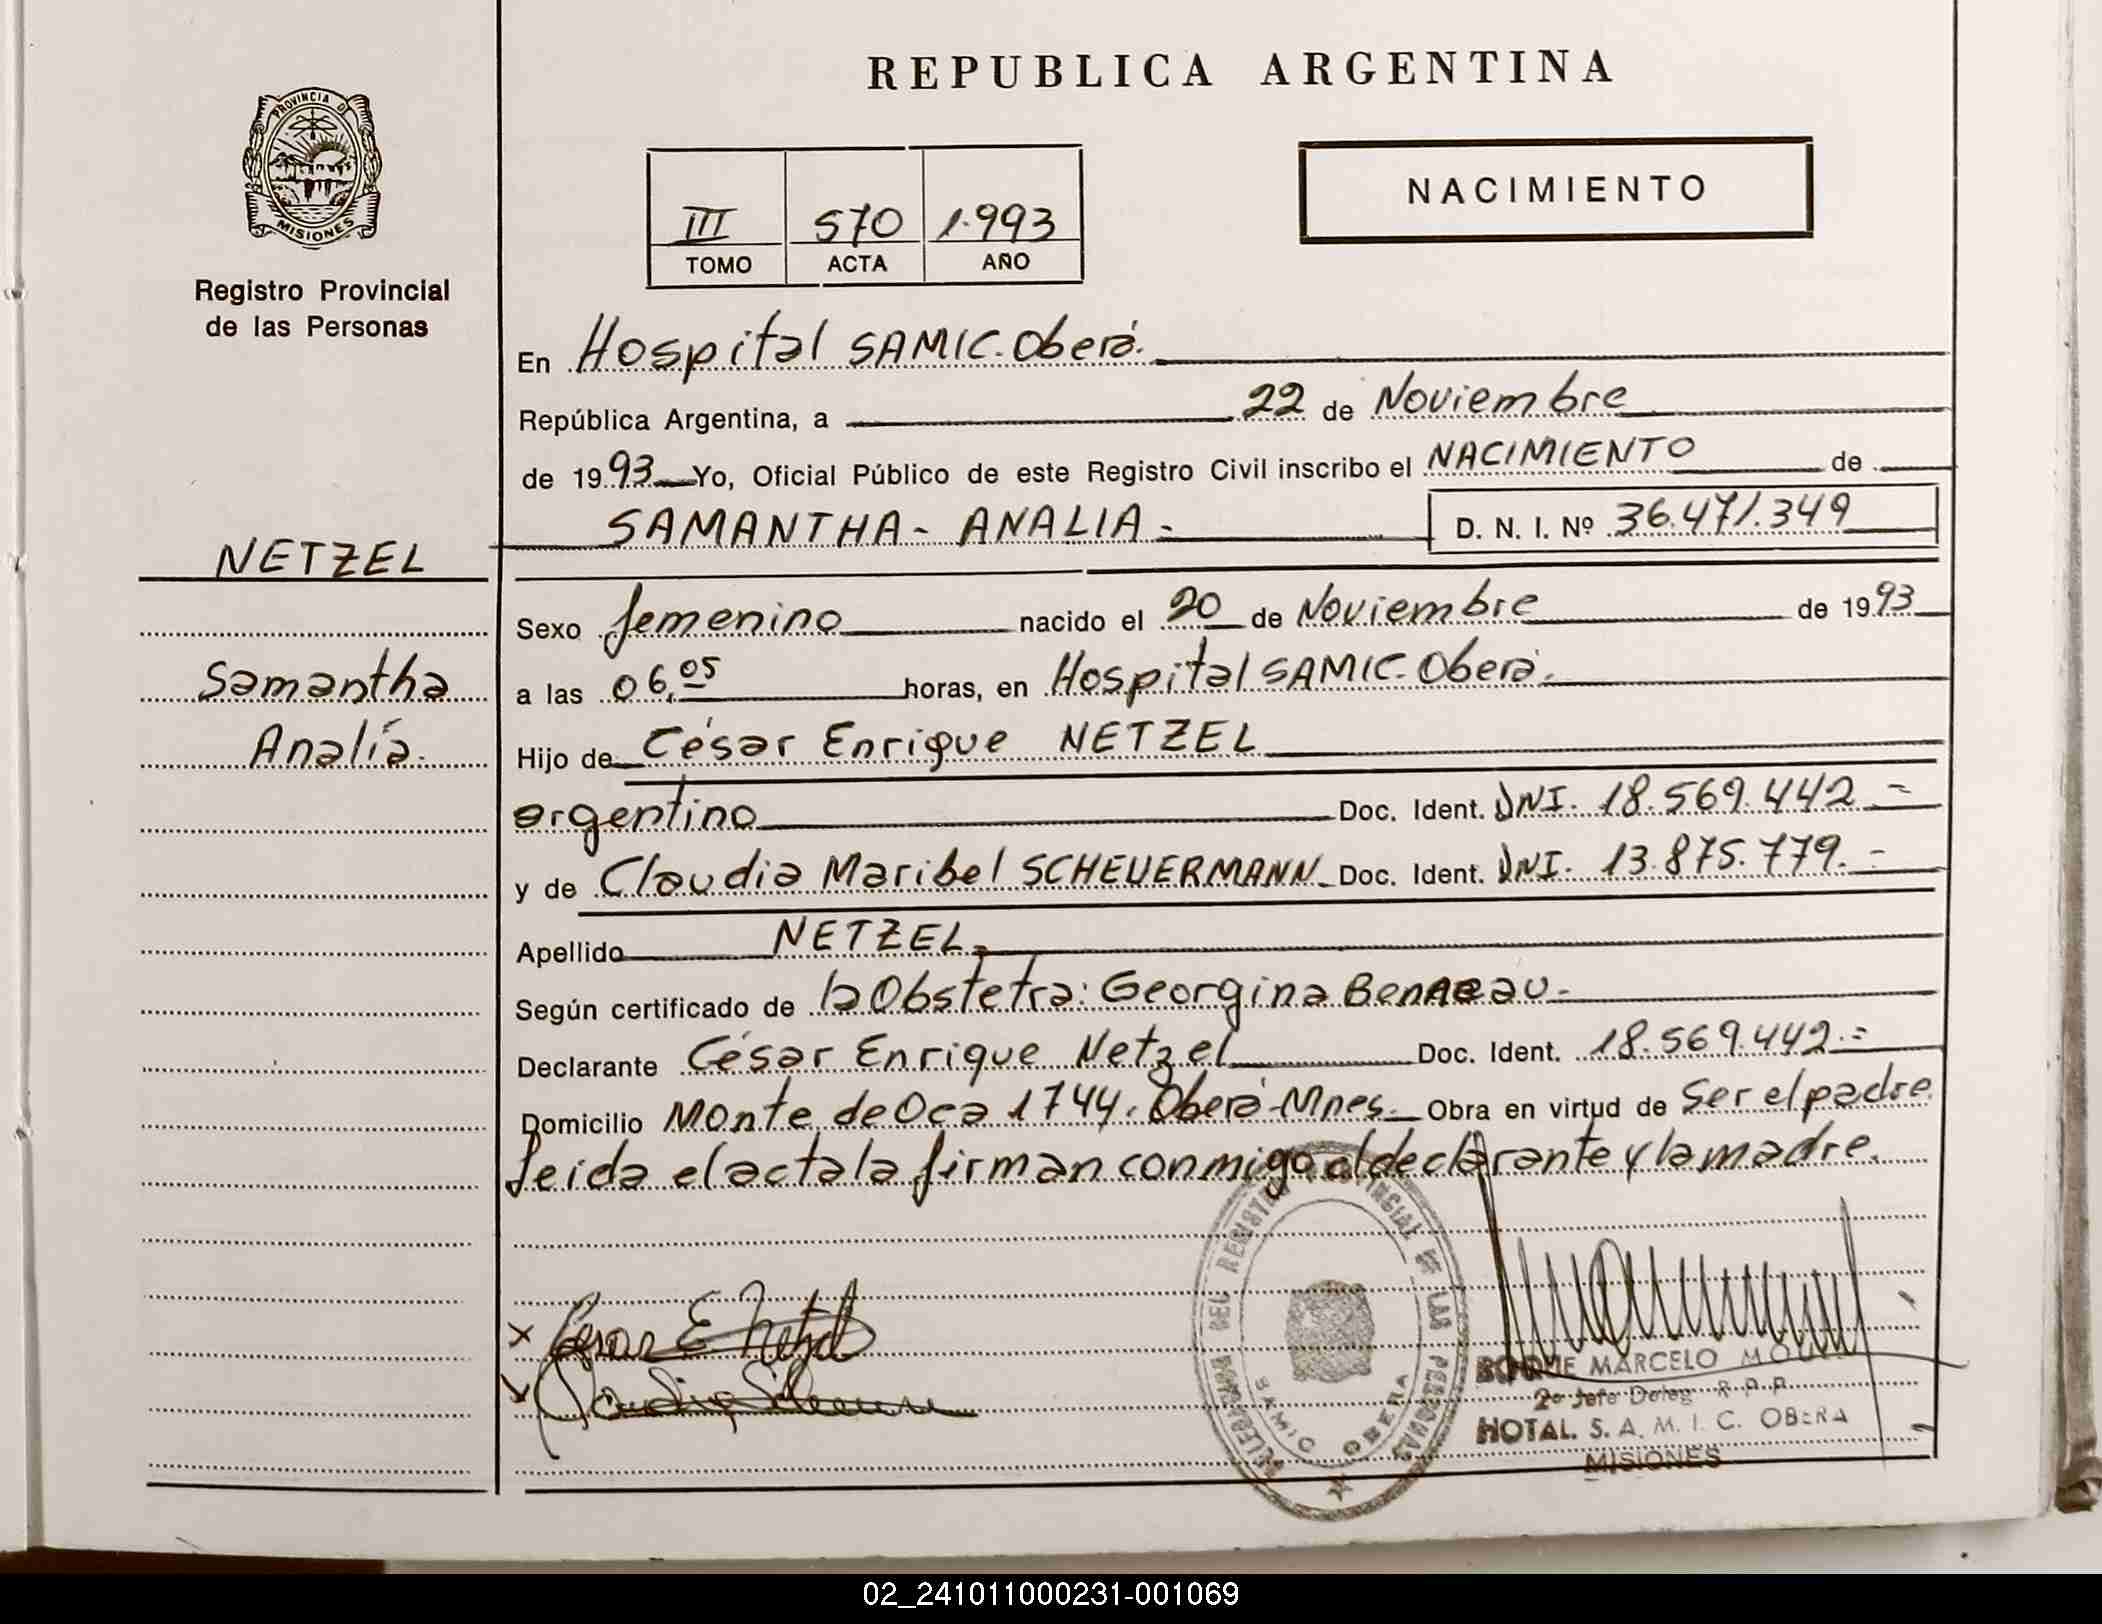 REPUBLICA ARGENTINA
PROVINCIA D
MISIONES
Registro Provincial
de las Personas
NACIMIENTO
III 570 1.993
TOMO ACTA AÑO
En Hospital SAMIC. Oberá.
República Argentina, a 22 de Noviembre
de 1993 Yo, Oficial Público de este Registro Civil inscribo el NACIMIENTO de
SAMANTHA - ANALIA - D. N. I. Nº 36.471.349
NETZEL
Samantha
Analía.
Sexo femenino nacido el 20 de Noviembre de 1993
a las 06,05 horas, en Hospital SAMIC. Oberá.
Hijo de César Enrique NETZEL
argentino Doc. Ident. DNI. 18.569.442 =
y de Claudia Maribel SCHEUERMANN Doc. Ident. DNI. 13.875.779. =
Apellido NETZEL
Según certificado de la Obstetra: Georgina -
Declarante César Enrique Netzel Doc. Ident. 18.569.442.=
Domicilio Monte de Oca 1744. Oberá - Mnes. Obra en virtud de ser el padre
leida el acta la firman conmigo el declarante y la madre.
x Cesar E Netzel
DELEGACION DEL REGISTRO PROVINCIAL DE LAS PERSONAS
SAMIC OBERA
ROQUE MARCELO
2º Jefe Deleg R. P. P.
HOTAL. S. A. M. I. C. OBERA
MISIONES
02_241011000231-001069